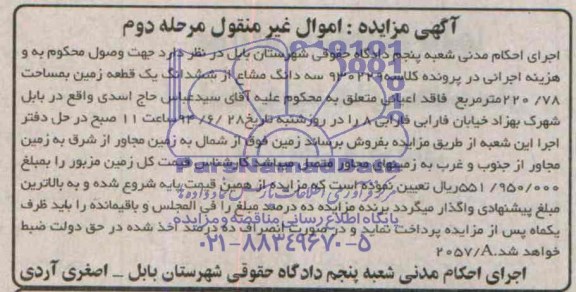 آگهی مزایده : اموال غیر منقول مرحله دوم
اجرای احکام مدنی شعبه پنجم دادگاه حقوقی شهرستان بابل در نظر دارد جهت وصول محکوم به و
هزینه اجرائی در پرونده کلاسه ۹۳۰۲۲۹ سه دانگ مشاع از ششدانگ یک قطعه زمین بمساحت
۲۲۰/۷۸ مترمربع فاقد اعیانی متعلق به محکوم علیه آقای سیدعباس حاج اسدی واقع در بابل
شهرک بهزاد خیابان فارابی فارابی ۸ را در روز شنبه تاریخ ۹۴/۶/۲۸ ساعت ۱۱ صبح در حل دفتر
اجرا این شعبه از طریق مزایده بفروش برساند زمین فوق از شمال به زمین مجاور از شرق به زمین
مجاور از جنوب و غرب به زمینهای مجاور متصل میباشد کارشناس قیمت کل زمین مزبور را بمبلغ
۵۵۱/۹۵۰/۰۰۰ ریال تعیین نموده است که مزایده از همین قیمت پایه شروع شده و به بالاترین
مبلغ پیشنهادی واگذار میگردد برنده مزایده ده درصد مبلغ را فی المجلس و باقیمانده را باید ظرف
یکماه پس از مزایده پرداخت نماید و در صورت انصراف ده درصد اخذ شده در حق دولت ضبط
خواهد شد.۲۰۵۷/A
اجرای احکام مدنی شعبه پنجم دادگاه حقوقی شهرستان بابل _ اصغری آردی
ParsNamadData
پایگاه اطلاع رسانی مناقصه و مزایده
۰۲۱-۸۸۳۴۹۶۷۰-۵